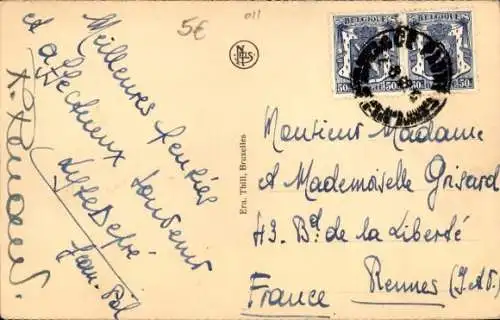 5€
011
Meilleures pensées
et affectueux souvenir
Jean-Pol
NELS
Ern. Thill, Bruxelles
BELGIQUE
BELGIQUE
50
50
50
50
Monsieur Madame
et Mademoiselle Grisard
43. Bd de la Liberté
Rennes (I. et V.)
France